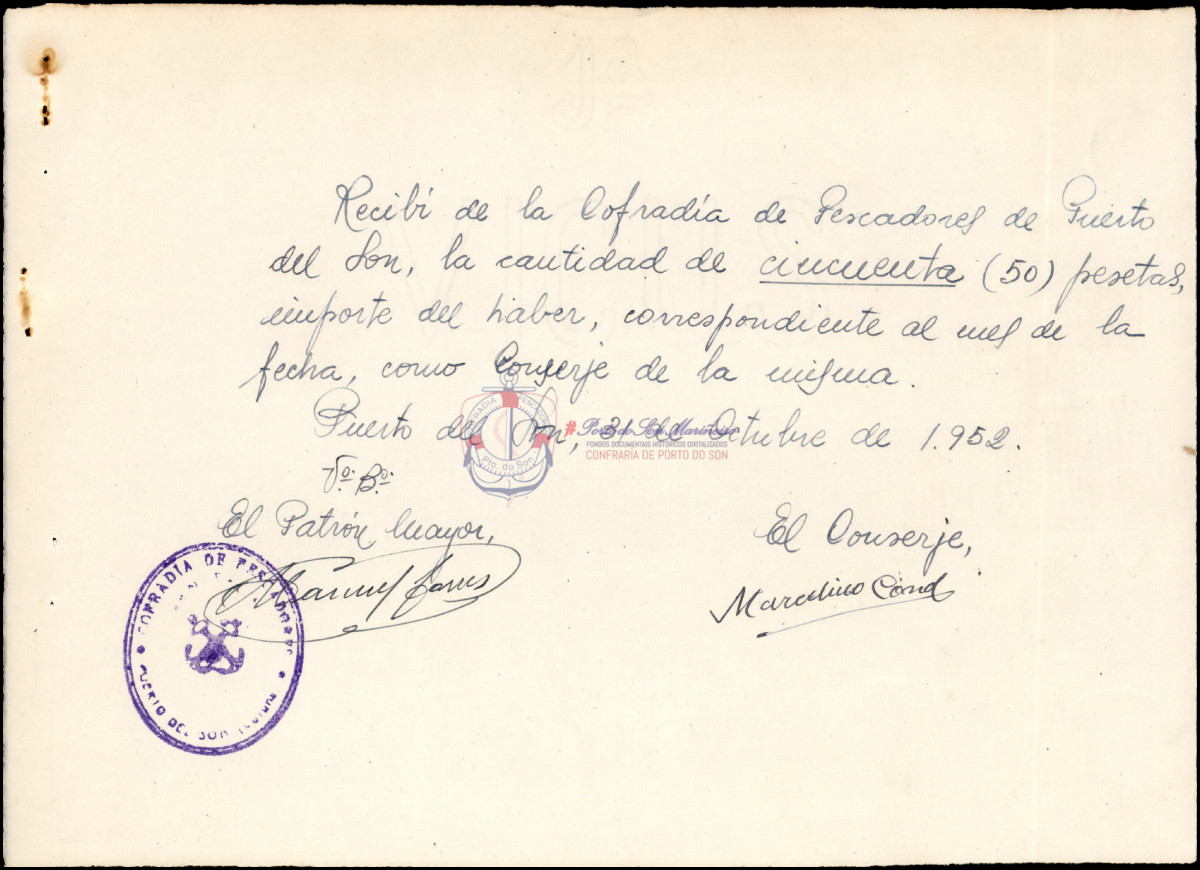 Recibí de la Cofradía de Pescadores de Puerto
del Son, la cantidad de cincuenta (50) pesetas,
importe del haber, correspondiente al mes de la
fecha, como Conserje de la misma.
Puerto del Son, 31 de Octubre de 1.952.
Vº. Bº.
El Patrón Mayor,
El Conserje,
Manuel
Marcelino Cond
COFRADIA DE PESCADORES
PUERTO DEL SON
COFRADIA PESCADORES
Pto. do Son
#Porto do Son Marineiro
FONDOS DOCUMENTAIS HISTÓRICOS DIXITALIZADOS
CONFRARÍA DE PORTO DO SON